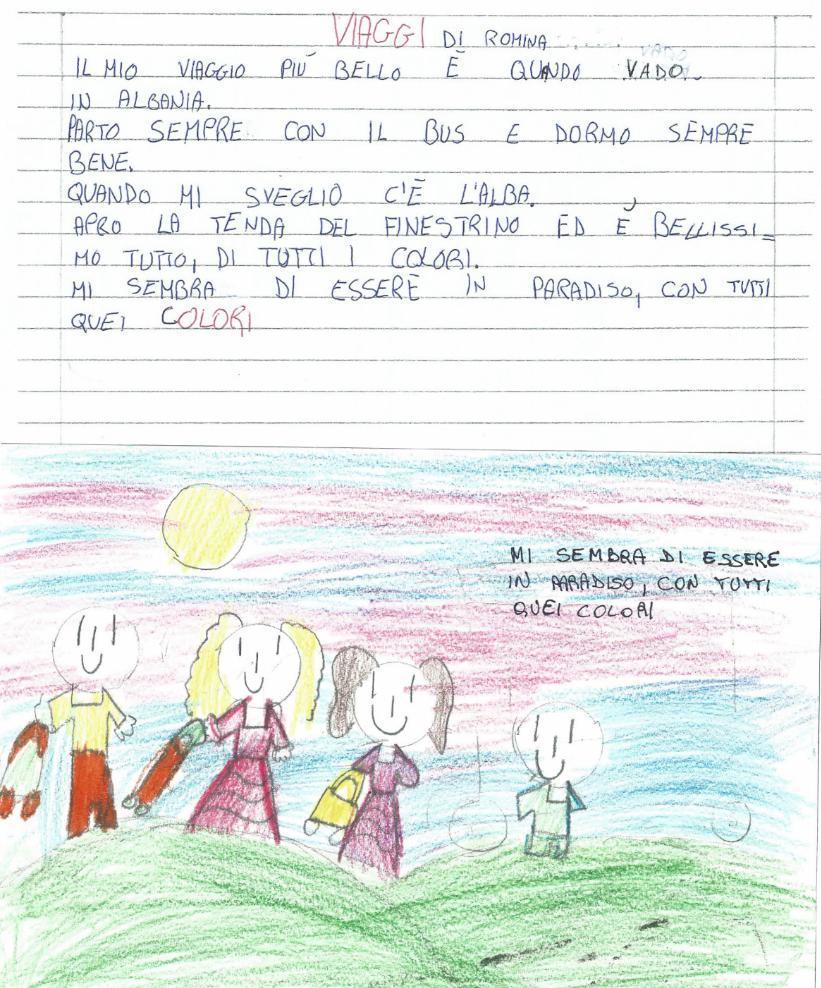 VIAGGI DI ROMINA
IL MIO VIAGGIO PIÙ BELLO È QUANDO VADO
IN ALBANIA.
PARTO SEMPRE CON IL BUS E DORMO SEMPRE
BENE.
QUANDO MI SVEGLIO C'È L'ALBA.
APRO LA TENDA DEL FINESTRINO ED È BELLISSI=
MO TUTTO, DI TUTTI I COLORI.
MI SEMBRA DI ESSERE IN PARADISO, CON TUTTI
QUEI COLORI
MI SEMBRA DI ESSERE
IN PARADISO, CON TUTTI
QUEI COLORI